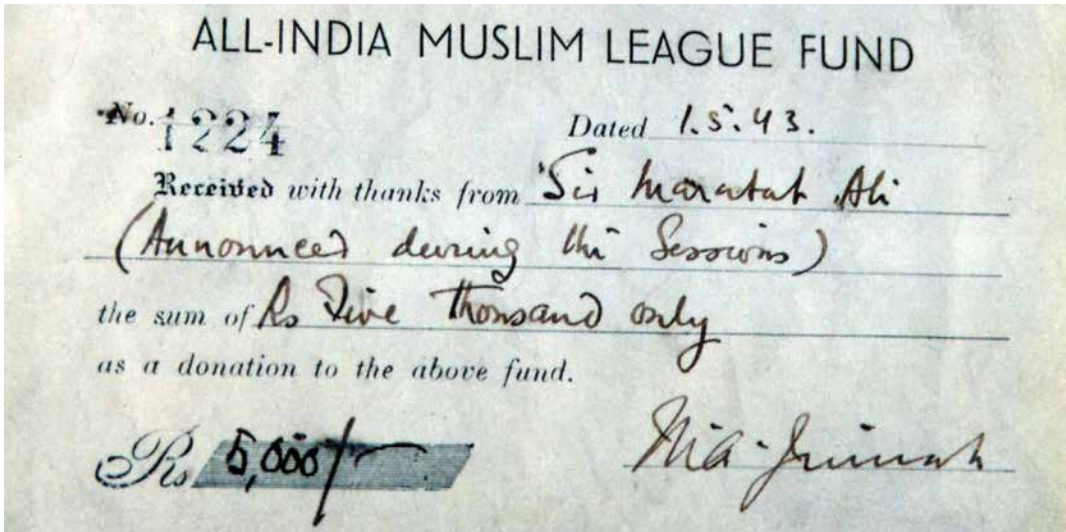 ALL-INDIA MUSLIM LEAGUE FUND
No. 1224 Dated 1.5.43.
Received with thanks from Sir Maratab Ali
(Announced during the Sessions)
the sum of Rs Five Thousand only
as a donation to the above fund.
Rs 5,000/- M.A. Jinnah